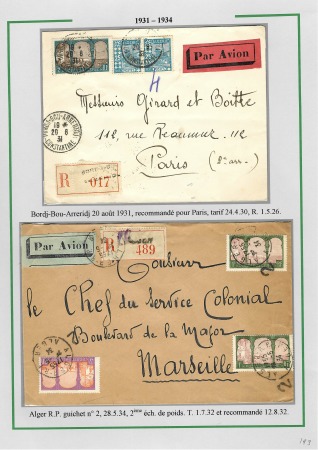 1931 – 1934
Par Avion
H
BORDJ-BOU-ARRERIDJ
20 - 8
31
CONSTANTINE
Messieurs Girard et Boitte
112, rue Reaumur, 112
Paris (2e arr.)
R
017
Bordj-Bou-Arreridj 20 août 1931, recommandé pour Paris, tarif 24.4.30, R. 1.5.26.
Par Avion
R
489
Monsieur
le Chef du Service Colonial
Boulevard de la Major
Marseille
ALGER
Alger R.P. guichet n° 2, 28.5.34, 2ème éch. de poids. T. 1.7.32 et recommandé 12.8.32.